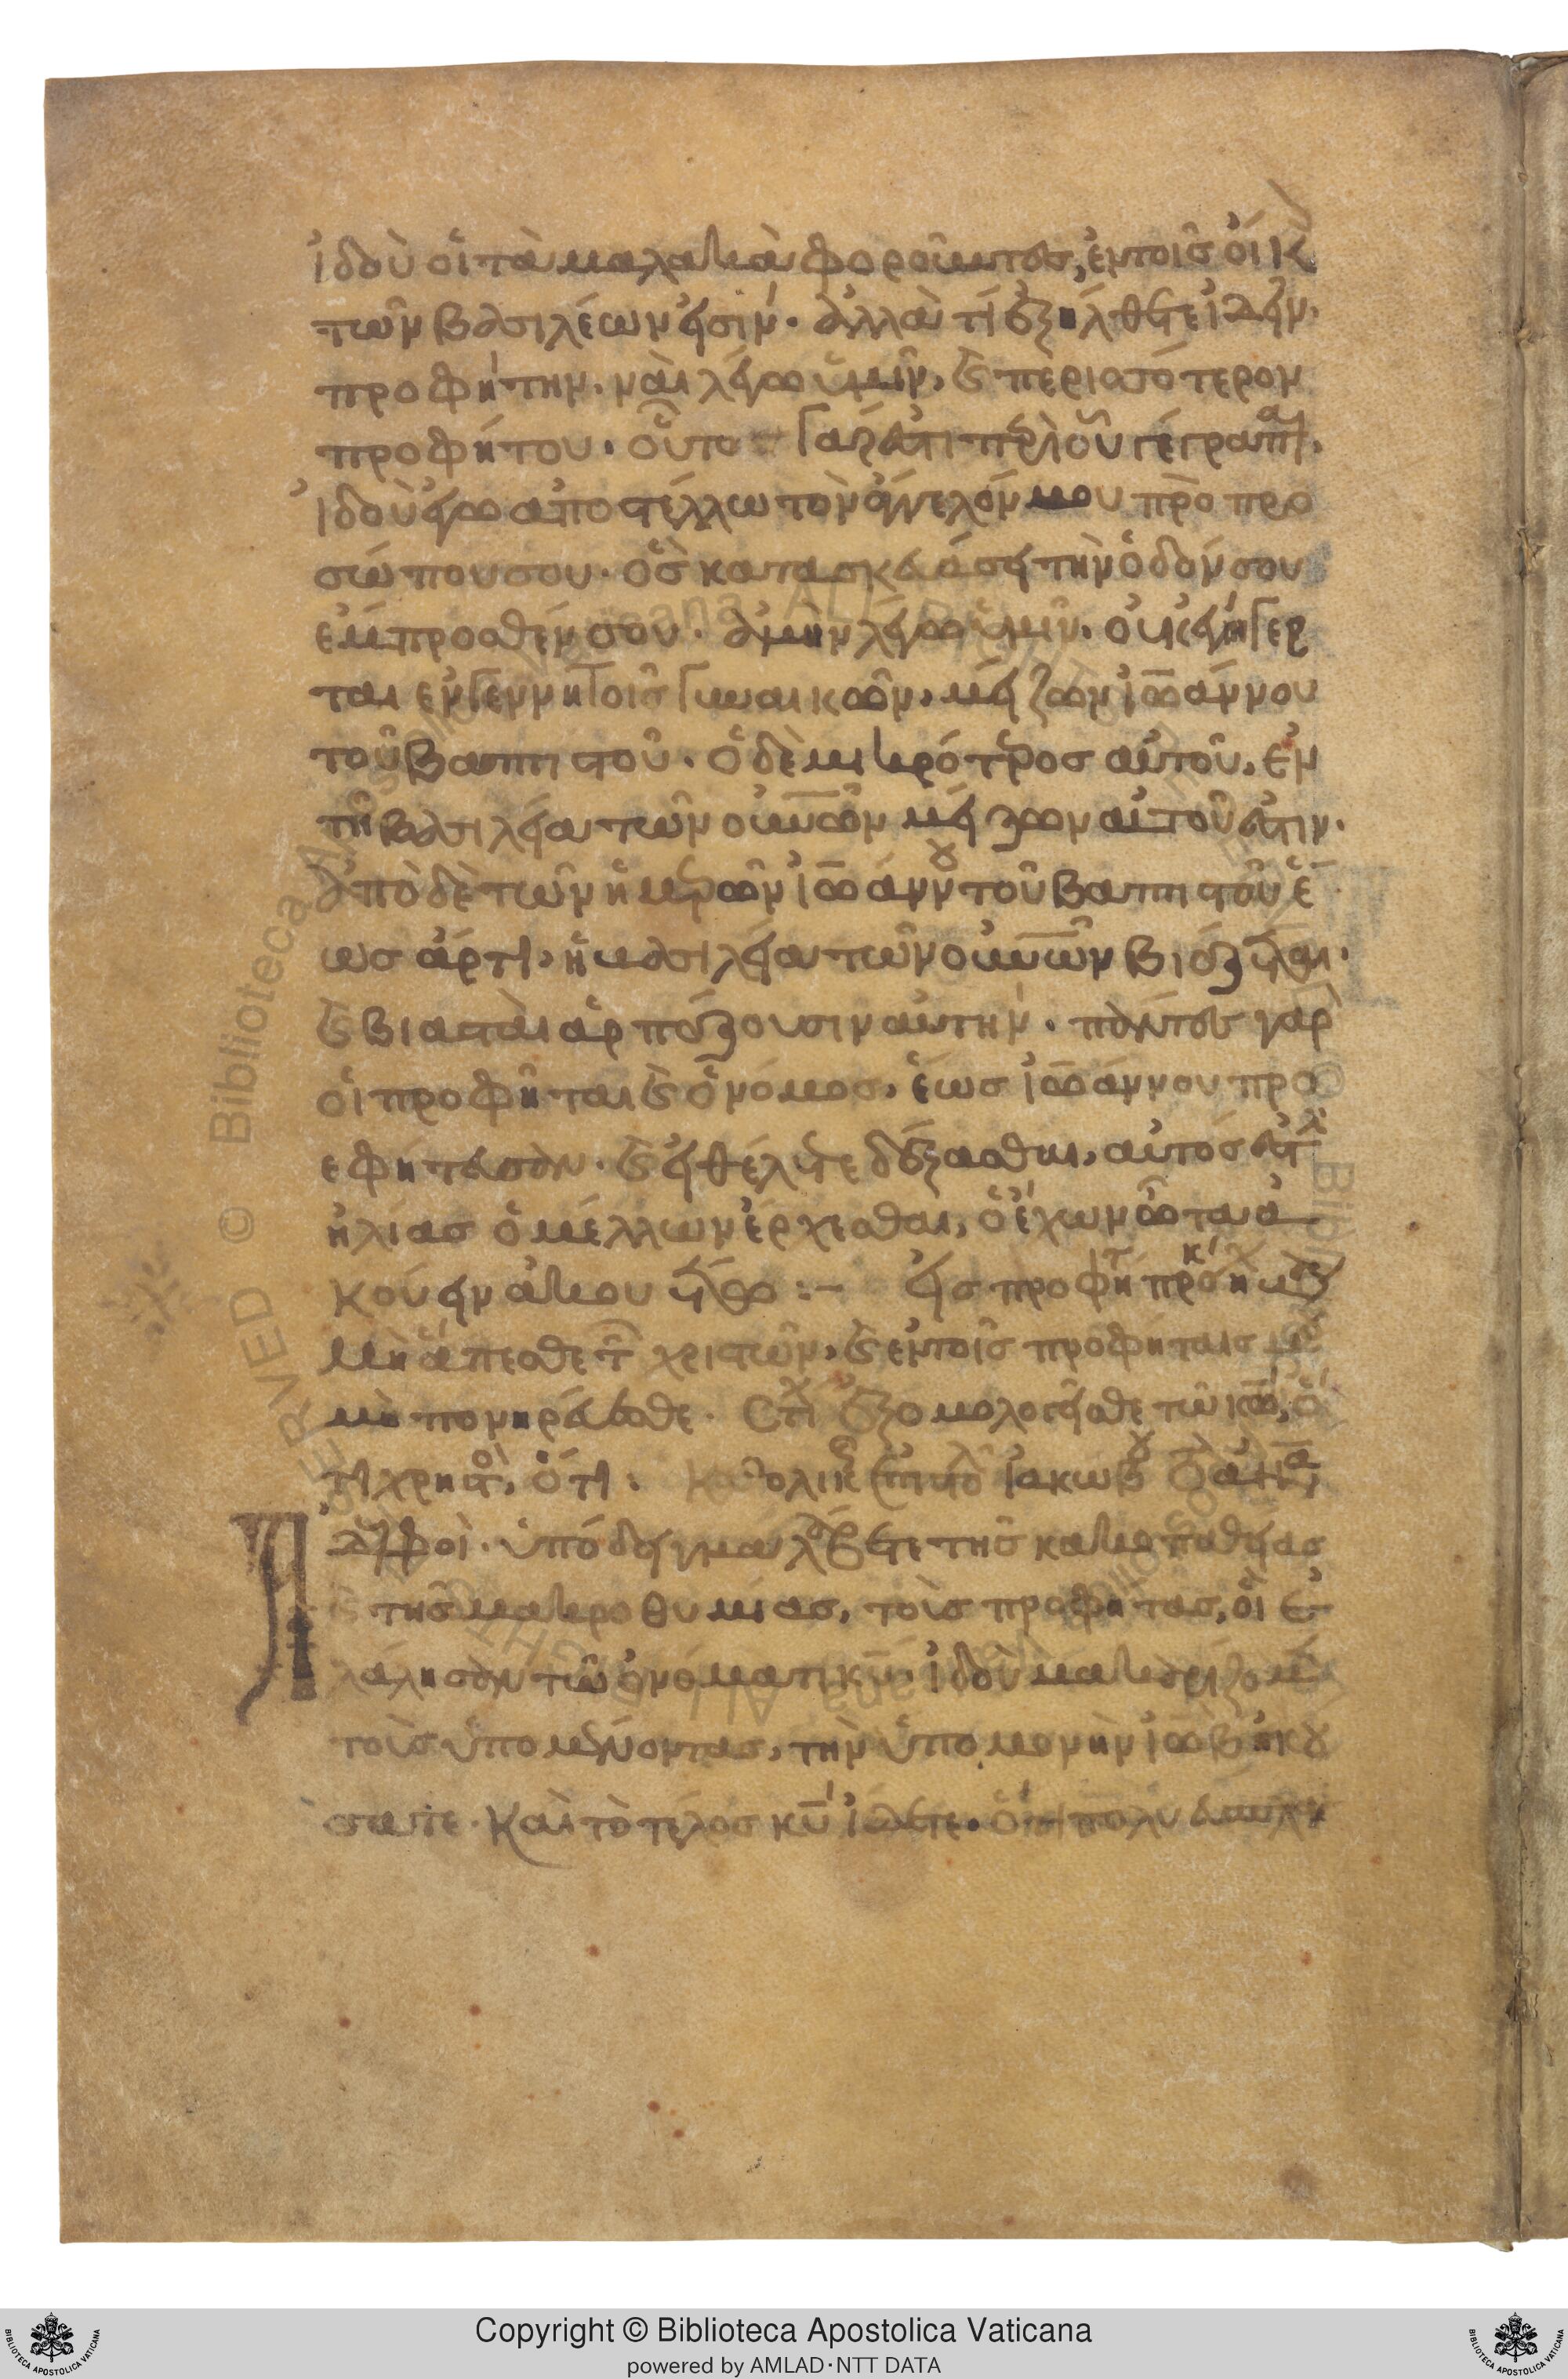 ἰδοὺ οἱ τὰ μαλακὰ φοροῦντες, ἐν τοῖς οἴκ
τῶν βασιλέων εἰσίν. ἀλλὰ τί ἐξήλθετε ἰδεῖν.
προφήτην. ναὶ λέγω ὑμῖν, καὶ περισσότερον
προφήτου. οὗτο γάρ ἐστι περὶ οὗ γέγραπται.
ἰδοὺ ἐγὼ ἀποστέλλω τὸν ἄγγελόν μου πρὸ προ
σώπου σου. ὃς κατασκευάσει τὴν ὁδόν σου
ἔμπροσθέν σου. ἀμὴν λέγω ὑμῖν. οὐκ ἐγήγερ
ται ἐν γεννητοῖς γυναικῶν, μείζων ἰωάννου
τοῦ βαπτιστοῦ. ὁ δὲ μικρότερος αὐτοῦ, ἐν
τῇ βασιλεία τῶν οὐνῶν μείζων αὐτοῦ ἐστιν.
ἀπὸ δὲ τῶν ἡμερῶν ἰωάννου τοῦ βαπτιστοῦ ἕ
ως ἄρτι, ἡ βασιλεία τῶν οὐνῶν βιάζεται.
καὶ βιασταὶ ἁρπάζουσιν αὐτήν. πάντες γὰρ
οἱ προφῆται καὶ ὁ νόμος, ἕως ἰωάννου προ
εφήτευσαν. καὶ εἰ θέλετε δέξασθαι, αὐτός ἐστ
ἠλίας ὁ μέλλων ἔρχεσθαι, ὁ ἔχων ὦτα ἀ
κούειν ἀκουέτω :– εἰς προφήτ προκ
μὴ ἅπτεσθε τ χριστῶν, καὶ ἐν τοῖς προφήταις μ
μὴ πονηρεύεσθε. στίχ ἐξομολογεῖσθε τῷ κω, ὅ
τι χρηστὸ, ὅτι. καθολικῆς ἐπιστολ ἰακώβου
ἀδελφοὶ. ὑπόδειγμα λάβετε τῆς κακοπαθείας
καὶ τῆς μακροθυμίας, τοὺς προφήτας, οἳ ἐ
λάλησαν τῷ ὀνόματι κυ. ἰδοὺ μακαρίζομε
τοὺς ὑπομένοντας, τὴν ὑπομονὴν ἰὼβ ἠκού
σατε. καὶ τὸ τέλος κυ ἴδετε. ὅτι πολυ
Copyright © Biblioteca Apostolica Vaticana
powered by AMLAD·NTT DATA